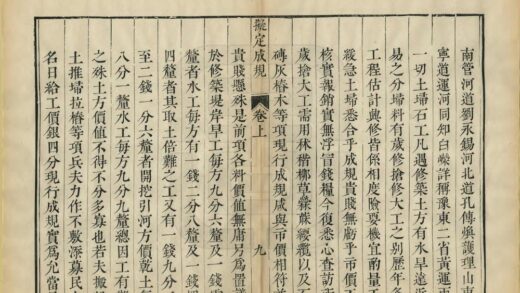 南管河道劉永錫河北道孔傳㷆護理山東
寧道運河同知白嶸詳稱豫東二省黃運
一切土埽石工凡遇修築土方有水旱遠近
易之分埽料有歲修搶修大工之別歷年
工程估計與修皆係相度險要機宜酌量
緩急土埽悉合乎成規貴賤無虧乎市價
核實報銷實無浮冒錢糧今復悉心查訪
歲搶大工需用秫楷柳草蔴繩纜以及
磚灰樁木等項現行成規咸與市價相符
擬定成規
卷上
九
貴賤懸殊是前項各料價值無庸另為置
於修築堤岸旱工每方九分六釐及一錢
釐者水工每方有一錢二分八釐及一錢
四釐者其取土倍難之工又有一錢九分
至二錢一分六釐者開挖引河方價乾土
八分一釐水工每方九分九釐總因工有
之殊土方價值不得不分多寡也若夫搬
土推埽拉樁等項兵夫力作不敷添募民
名日給工價銀四分現行成規實為允當